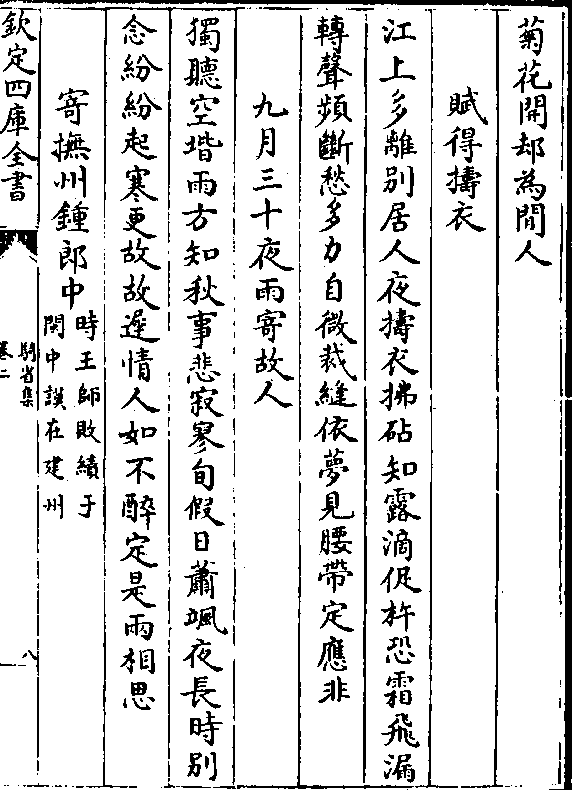 菊花開却為閒人
賦得擣衣
江上多離别居人夜擣衣拂砧知露滴促杵恐霜飛漏
轉聲頻斷愁多力自微裁縫依夢見腰帶定應非
九月三十夜雨寄故人
獨聽空堦雨方知秋事悲寂寥旬假日蕭颯夜長時别
念紛紛起寒更故故遲情人如不醉定是兩相思
寄撫州鍾郎中
時王師敗績于
閩中謨在建州
欽定四庫全書
騎省集
卷二
八